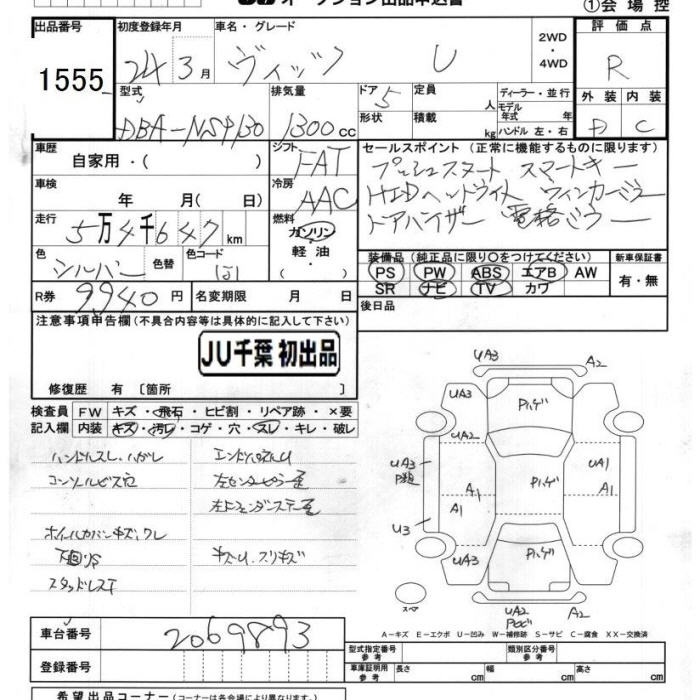 オークション出品申込書
①会場控
出品番号
1555
初度登録年月
24 3月
車名・グレード
ヴィッツ U
2WD
・
4WD
評価点
R
外装 内装
D C
型式
DBA-NSP130
排気量
1300cc
ドア 5
形状
定員 人
積載 kg
ディーラー・並行
モデル年式 年
ハンドル 左・右
車歴
自家用・( )
シフト
FAT
セールスポイント (正常に機能するものに限ります)
プッシュスタート スマートキー
HIDヘッドライト ウィンカーミラー
ドアバイザー 電格ミラー
車検
年 月( 日)
冷房
AAC
走行
5万4千647km
燃料
ガソリン
軽油
・( )
色
シルバー
色替
色コード
装備品 (純正品に限り○をつけてください)
PS PW ABS エアB AW
SR ナビ TV カワ
新車保証書
有・無
R券 9940円
名変期限 月 日
後日品
注意事項申告欄 (不具合内容等は具体的に記入して下さい)
JU千葉 初出品
修復歴 有 [箇所 ]
検査員記入欄
FW キズ・飛石・ヒビ割・リペア跡・×要
内装 キズ・汚レ・コゲ・穴・スレ・キレ・破レ
ハンドルスレ・ハガレ
コンソルビス穴
ホイルカバーキズ、ワレ
下回りS
スタッドレスT
左センターピラー歪
キズU、スリキズ
UA3 A2
UA3 A2
UA2
UA3
UA1
A1 A1
A1
U3
UA3 UA3
UA2 A2
スペア
A-キズ E-エクボ U-凹み W-補修跡 S-サビ C-腐食 XX-交換済
車台番号
2069893
登録番号
型式指定番号 参考
類別区分番号 参考
車庫証明用 参考 長さ cm 幅 cm 高さ cm
希望出品コーナー (コーナーは各会場により異なります)